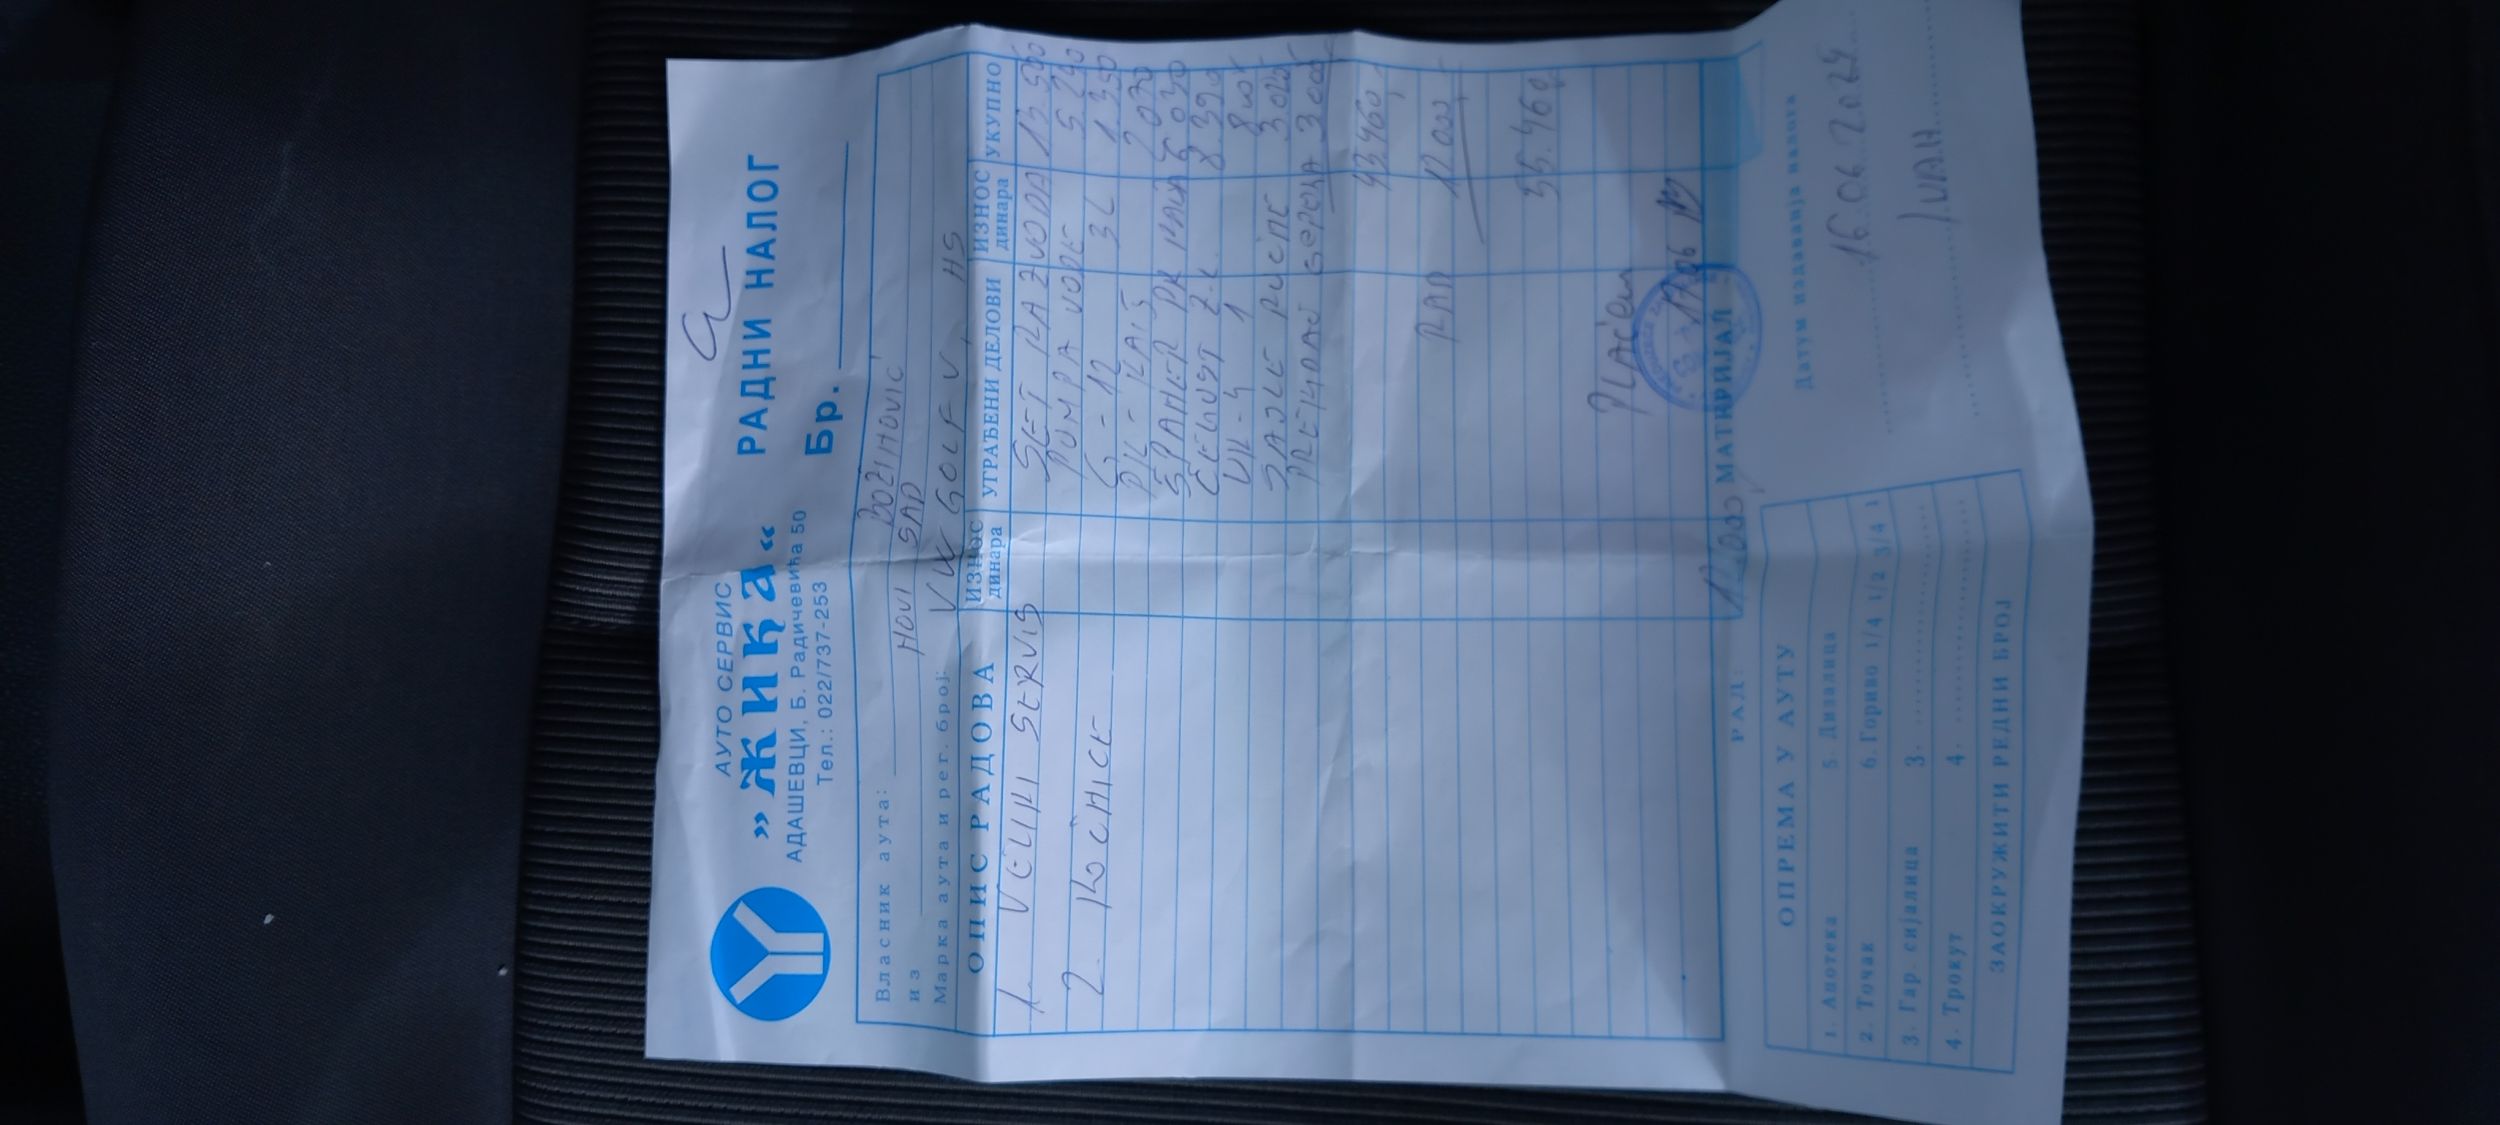 АУТО СЕРВИС
»Жика«
АДАШЕВЦИ, Б. Радичевића 50
Тел.: 022/737-253
РАДНИ НАЛОГ
Бр.
Власник аута: BOŽIНOVIĆ
из НOVI SAD
Марка аута и рег. број: VW GOLF V, НS
ОПИС РАДОВА ИЗНОС динара УГРАЂЕНИ ДЕЛОВИ ИЗНОС динара УКУПНО
1. VELIКI SERVIS SET RAZVODA 13.500
2. КOČНICE PUMPA VODE 5.240
G-12 3L 1.350
PK-КAIŠ 2.070
ŠPANER PK КAIŠA 6.030
ČELJUST Z.L. 8.390
UL-4 1 800
SAJLE RUČNE 3.020
PREGLDAJ 3.000
43.460
RAD 12.000
55.460
PLAĆEN
17.06
РАД: 12.000 МАТЕРИЈАЛ:
ОПРЕМА У АУТУ
1. Апотека 5. Дизалица
2. Точак 6. Гориво 1/4 1/2 3/4 1
3. Гар. сијалица 3.
4. Трокут 4.
ЗАОКРУЖИТИ РЕДНИ БРОЈ
Датум издавања налога
16.06.2024
IVAН